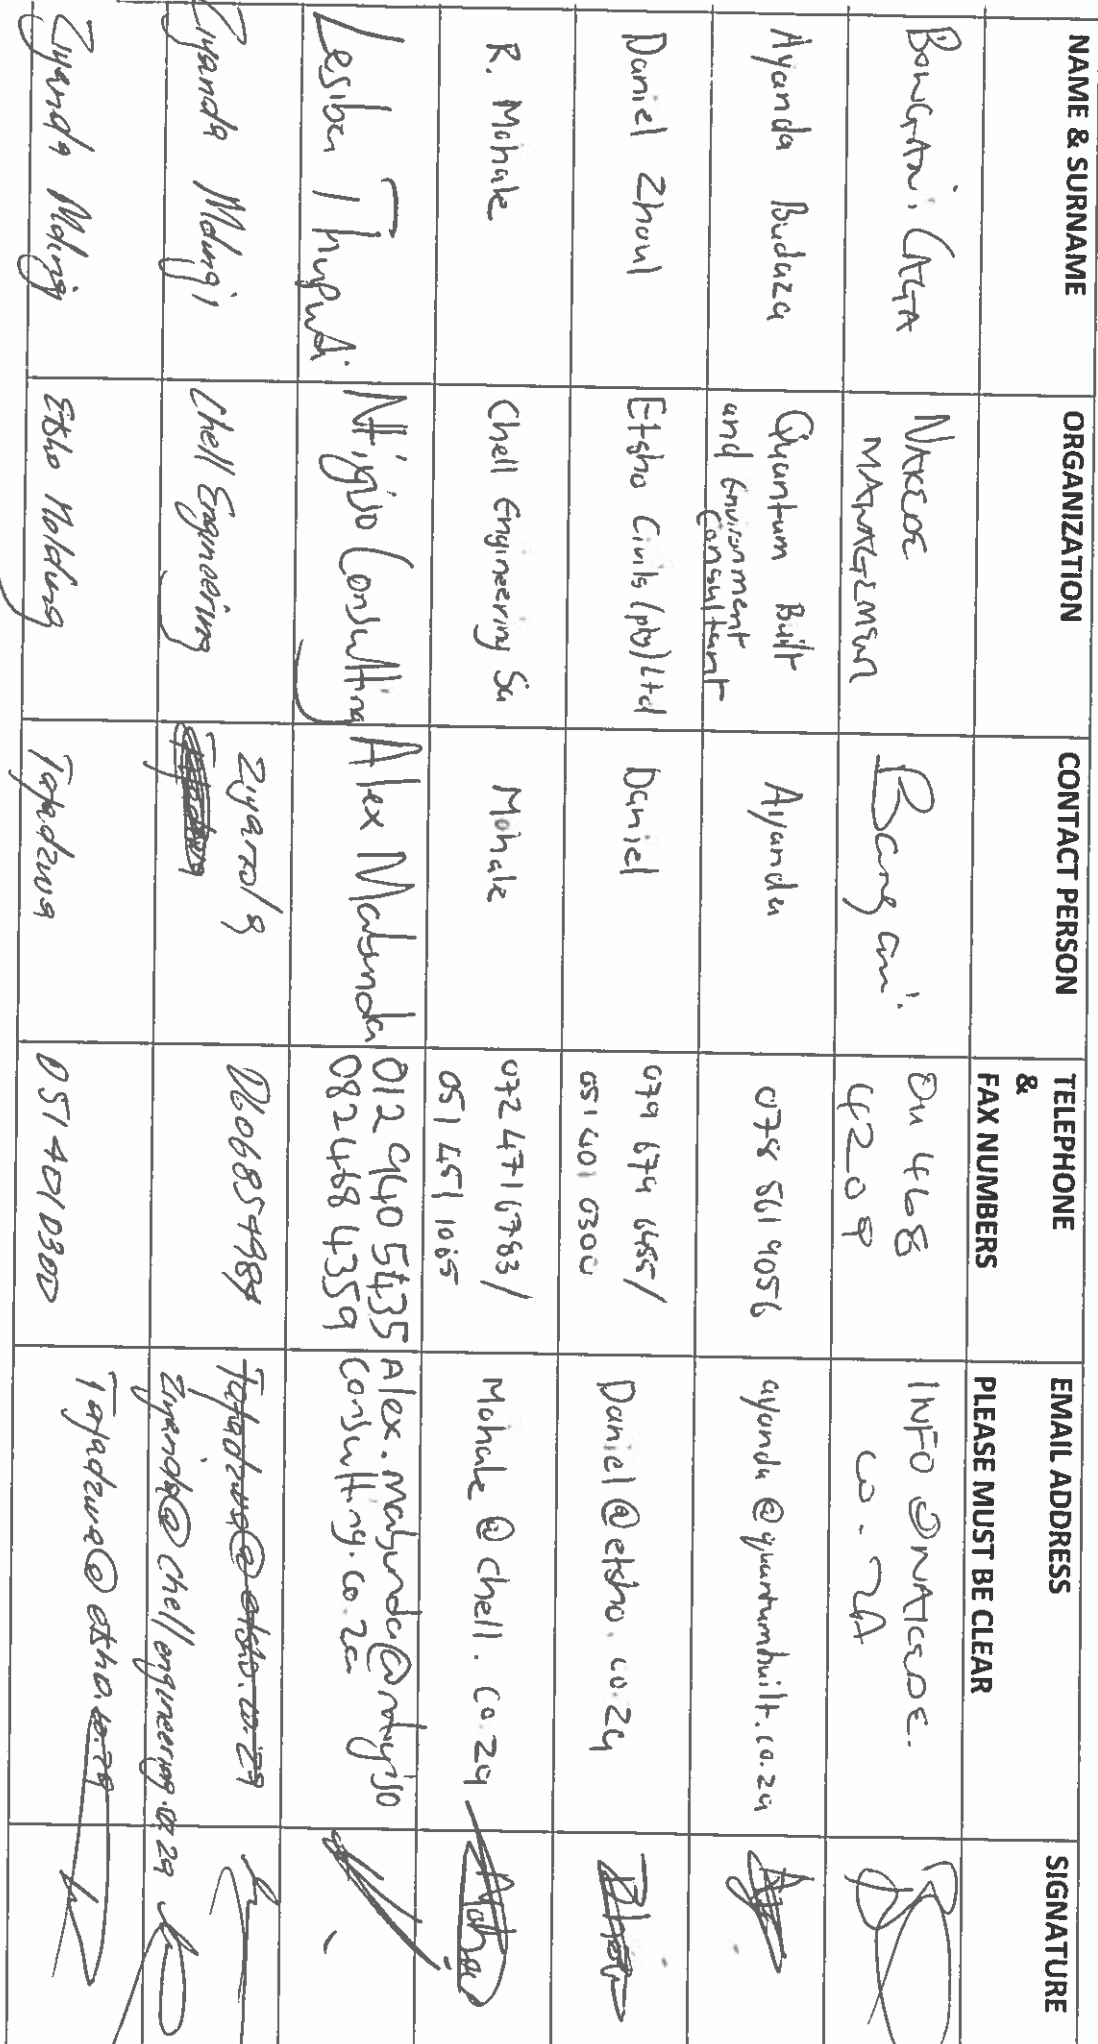 NAME & SURNAME
ORGANIZATION
CONTACT PERSON
TELEPHONE
&
FAX NUMBERS
EMAIL ADDRESS
PLEASE MUST BE CLEAR
SIGNATURE
NAKEDE
011 468
4208
INFO@NAKEDE.
CO.ZA
Ayanda Budaza
Quantum Built
and Environment
Consultant
Ayanda
078 561 9056
ayanda@quantumbuilt.co.za
Daniel Zhou
Etsho Civils (pty) Ltd
Daniel
079 679 6455/
051 401 0300
Daniel@etsho.co.za
R. Mohale
Chell Engineering
Mohale
072 471 6783/
051 451 1065
Mohale@chell.co.za
Lesiba Thupudi
Ntiyiso Consulting
Alex Mabunda
012 940 5435
082 468 4359
Alex.mabunda@ntiyiso
consulting.co.za
Ziyanda Mdingi
Chell Engineering
Ziyanda
0606854984
Tafadzwa@etsho.co.za
Ziyanda@chellengineering.co.za
Ziyanda Mdingi
Etsho Holding
Tafadzwa
051 4010300
Tafadzwa@etsho.co.za